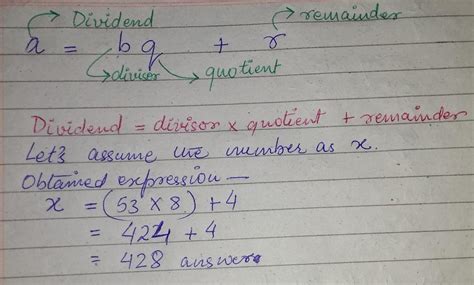 Dividend remainder
a = bq + r
divisor quotient
Dividend = divisor × quotient + remainder
Let's assume the number as x.
Obtained expression —
x = (53 × 8) + 4
= 424 + 4
= 428 answer.